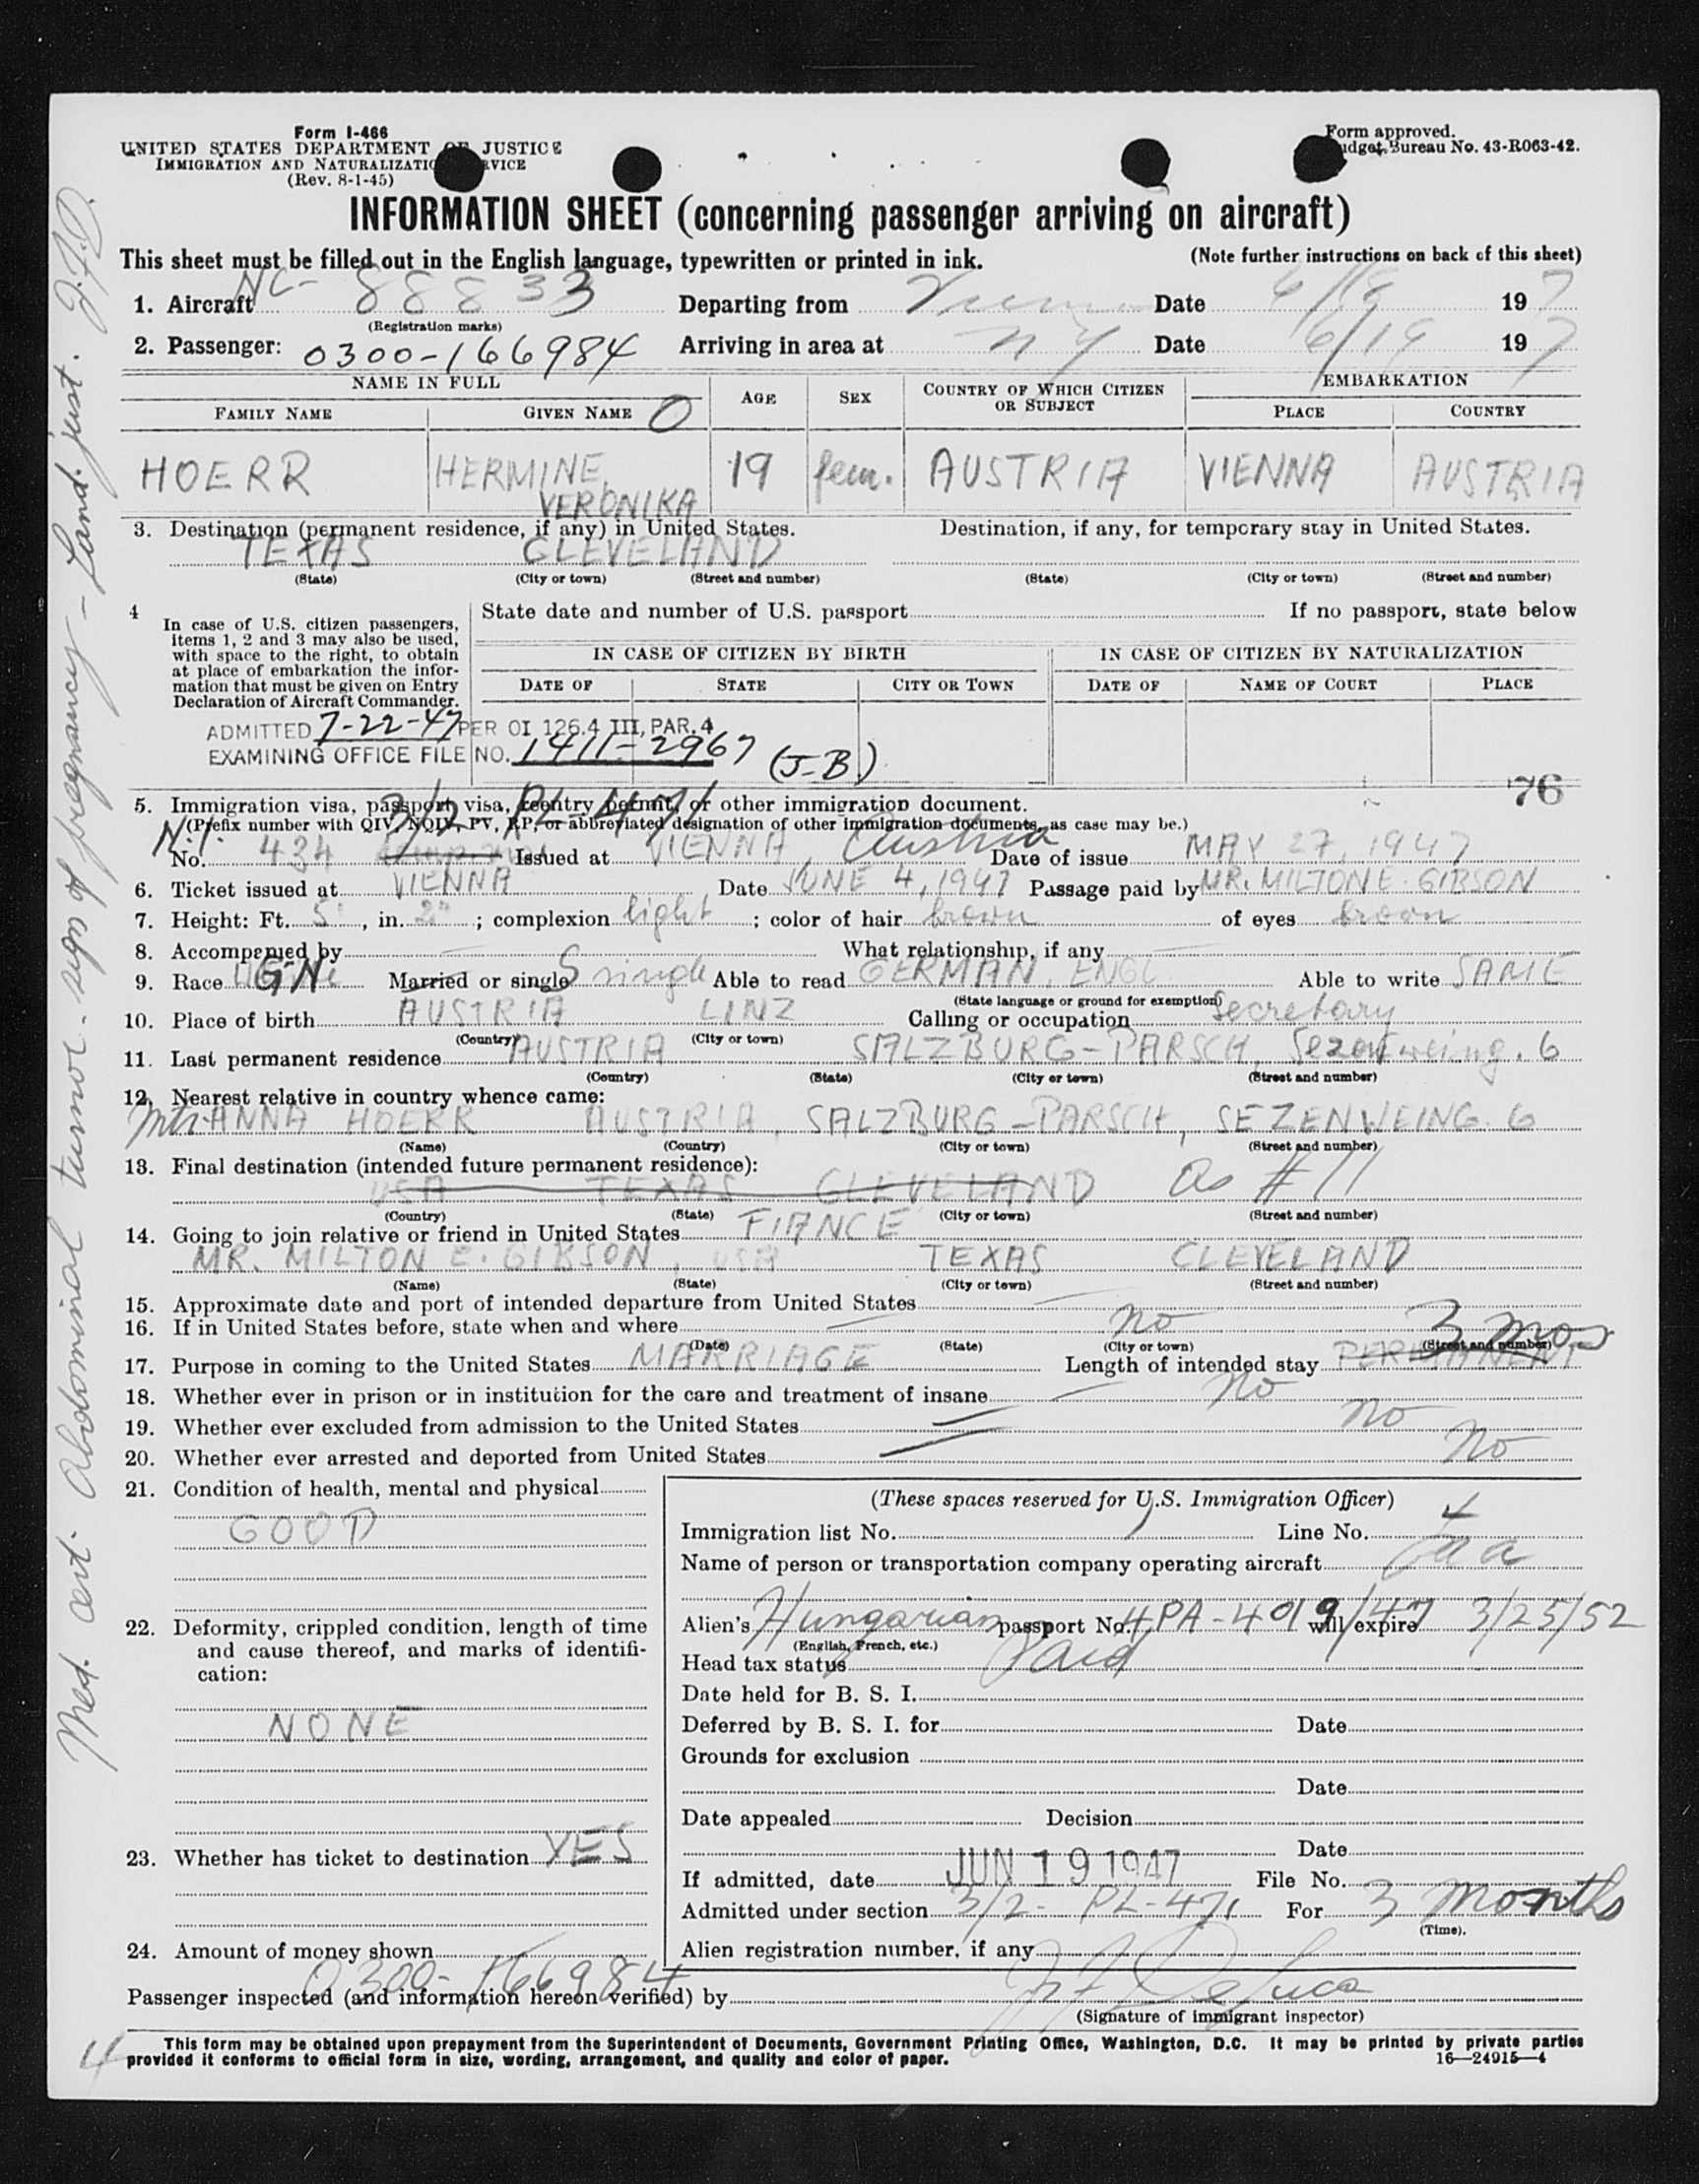 Form I-466
UNITED STATES DEPARTMENT OF JUSTICE
IMMIGRATION AND NATURALIZATION SERVICE
(Rev. 8-1-45)
Form approved.
Budget Bureau No. 43-R063-42.
INFORMATION SHEET (concerning passenger arriving on aircraft)
This sheet must be filled out in the English language, typewritten or printed in ink.
(Note further instructions on back of this sheet)
1. Aircraft NC-88833 Departing from Vienna Date 6/18 1947
(Registration marks)
2. Passenger: 0300-166984 Arriving in area at NY Date 6/19 1947
NAME IN FULL AGE SEX COUNTRY OF WHICH CITIZEN OR SUBJECT EMBARKATION
FAMILY NAME GIVEN NAME O PLACE COUNTRY
HOERR HERMINE, VERONIKA 19 fem. AUSTRIA VIENNA AUSTRIA
3. Destination (permanent residence, if any) in United States. Destination, if any, for temporary stay in United States.
TEXAS CLEVELAND
(State) (City or town) (Street and number) (State) (City or town) (Street and number)
4 In case of U.S. citizen passengers, items 1, 2 and 3 may also be used, with space to the right, to obtain at place of embarkation the information that must be given on Entry Declaration of Aircraft Commander.
State date and number of U.S. passport If no passport, state below
IN CASE OF CITIZEN BY BIRTH IN CASE OF CITIZEN BY NATURALIZATION
DATE OF STATE CITY OR TOWN DATE OF NAME OF COURT PLACE
ADMITTED 7-22-47 PER OI 126.4 III, PAR. 4
EXAMINING OFFICE FILE NO. 1411-2967 (J-B)
76
5. Immigration visa, passport visa, reentry permit, or other immigration document.
3/2 PL-471
(Prefix number with QIV, NQIV, PV, RP, or abbreviated designation of other immigration documents, as case may be.)
N.I.
No. 434 Issued at VIENNA, Austria Date of issue MAY 27, 1947
6. Ticket issued at VIENNA Date JUNE 4, 1947 Passage paid by MR. MILTON E. GIBSON
7. Height: Ft. 5, in. 2; complexion light; color of hair brown of eyes brown
8. Accompanied by What relationship, if any
9. Race GN Married or single S single Able to read GERMAN, ENGL Able to write SAME
(State language or ground for exemption)
10. Place of birth AUSTRIA LINZ Calling or occupation Secretary
(Country) (City or town)
11. Last permanent residence AUSTRIA SALZBURG-PARSCH, Sezenweing. 6
(Country) (State) (City or town) (Street and number)
12. Nearest relative in country whence came:
Mtr. ANNA HOERR AUSTRIA, SALZBURG-PARSCH, SEZENWEING. 6
(Name) (Country) (City or town) (Street and number)
13. Final destination (intended future permanent residence):
USA TEXAS CLEVELAND As #11
(Country) (State) (City or town) (Street and number)
14. Going to join relative or friend in United States FIANCE
MR. MILTON E. GIBSON, USA TEXAS CLEVELAND
(Name) (State) (City or town) (Street and number)
15. Approximate date and port of intended departure from United States
16. If in United States before, state when and where no
(Date) (State) (City or town) (Street and number)
17. Purpose in coming to the United States MARRIAGE Length of intended stay PERMANENT 3 mos
18. Whether ever in prison or in institution for the care and treatment of insane no
19. Whether ever excluded from admission to the United States no
20. Whether ever arrested and deported from United States no
21. Condition of health, mental and physical
GOOD
22. Deformity, crippled condition, length of time and cause thereof, and marks of identification:
NONE
23. Whether has ticket to destination YES
24. Amount of money shown
(These spaces reserved for U.S. Immigration Officer)
Immigration list No. 1 Line No. 4
Name of person or transportation company operating aircraft
Alien's Hungarian passport No. 4PA-4019/47 will expire 3/25/52
(English, French, etc.)
Head tax status Paid
Date held for B. S. I.
Deferred by B. S. I. for Date
Grounds for exclusion
Date
Date appealed Decision
Date
If admitted, date JUN 19 1947 File No.
Admitted under section 3/2- PL-471 For 3 months
(Time).
Alien registration number, if any
0300-166984
Passenger inspected (and information hereon verified) by DeLuca
(Signature of immigrant inspector)
This form may be obtained upon prepayment from the Superintendent of Documents, Government Printing Office, Washington, D.C. It may be printed by private parties
provided it conforms to official form in size, wording, arrangement, and quality and color of paper.
16—24915—4
4
Med. cert. Abdominal tumor - sign of pregnancy - Land. just. J.F.D.